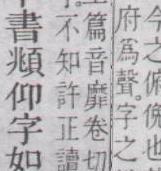 今之俯俛也
府爲聲字之
篇音靡卷切
不知許正讀
書頫仰字如